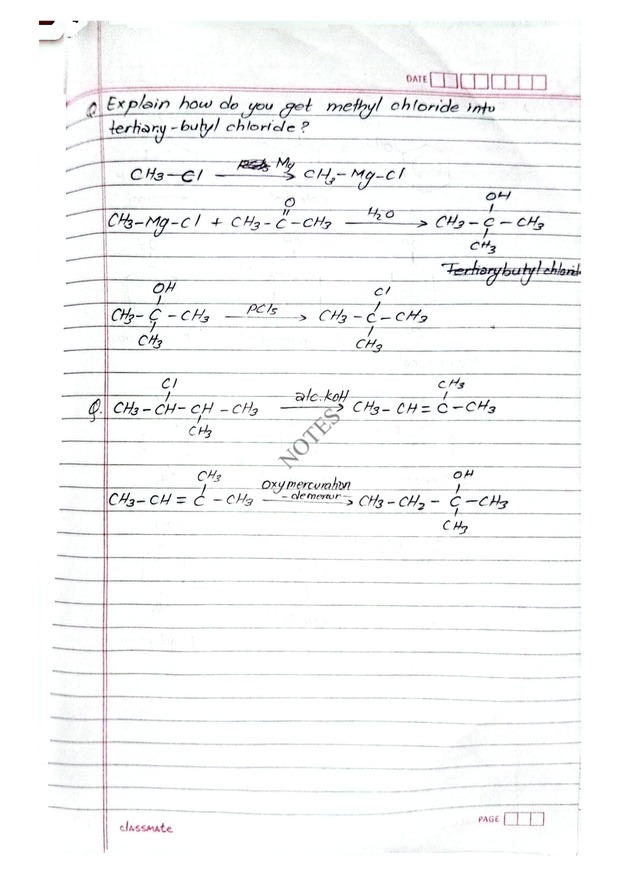 DATE
Q Explain how do you get methyl chloride into
tertiary-butyl chloride?
CH3-Cl Mg → CH3-Mg-Cl
O OH
CH3-Mg-Cl + CH3-C-CH3 H2O → CH3-C-CH3
CH3
Tertiarybutyl chlorid
OH Cl
CH3-C-CH3 PCl5 → CH3-C-CH3
CH3 CH3
Cl CH3
Q. CH3-CH-CH-CH3 alc.KOH → CH3-CH=C-CH3
CH3
NOTES
CH3 OH
CH3-CH=C-CH3 oxymercuration -demercur → CH3-CH2-C-CH3
CH3
classmate
PAGE